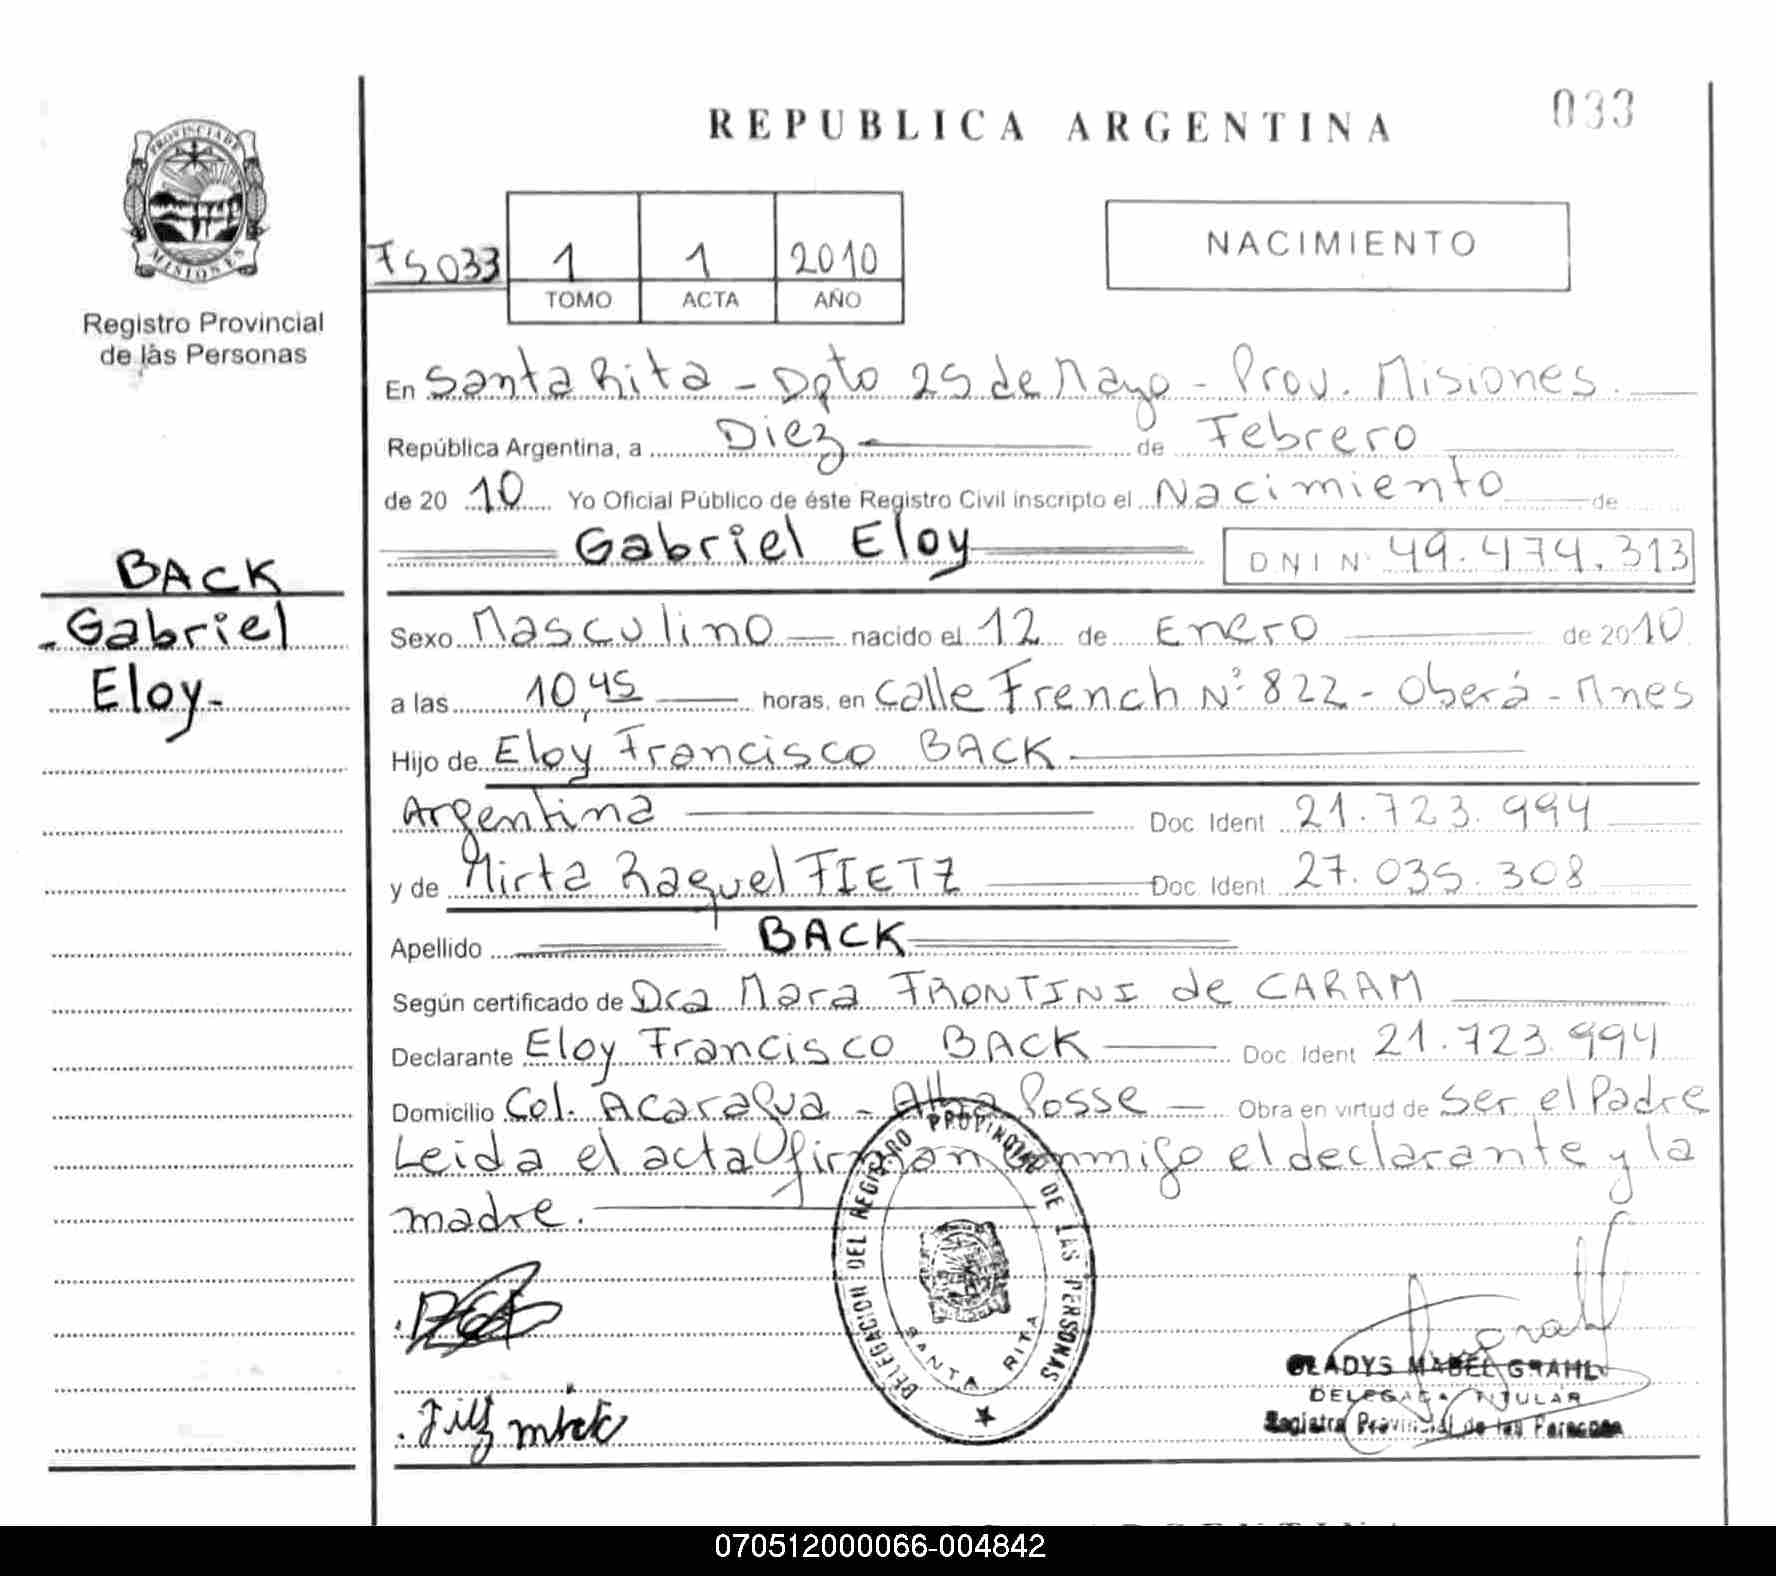 REPUBLICA ARGENTINA
033
PROVINCIA DE
MISIONES
Registro Provincial
de las Personas
FS 033
1 1 2010
TOMO ACTA AÑO
NACIMIENTO
En Santa Rita - Dpto 25 de Mayo - Prov. Misiones.
República Argentina, a Diez de Febrero
de 20 10 Yo Oficial Público de éste Registro Civil inscripto el Nacimiento de
Gabriel Eloy DNI Nº 49.474.313
BACK
Gabriel
Eloy-
Sexo Masculino nacido el 12 de Enero de 2010
a las 10,45 horas, en calle French Nº 822 - Oberá - Mnes
Hijo de Eloy Francisco BACK
Argentina Doc Ident 21.723.994
y de Mirta Raquel FIETZ Doc Ident 27.035.308
Apellido BACK
Según certificado de Dra Mara FRONTINI de CARAM
Declarante Eloy Francisco BACK Doc Ident 21.723.994
Domicilio Col. Acaragua - Alba Posse Obra en virtud de Ser el Padre
Leida el acta firman conmigo el declarante y la
madre.
DELEGACION DEL REGISTRO PROVINCIAL DE LAS PERSONAS
SANTA RITA
GLADYS MABEL GRAHL
DELEGADA TITULAR
Registro Provincial de las Personas
070512000066-004842